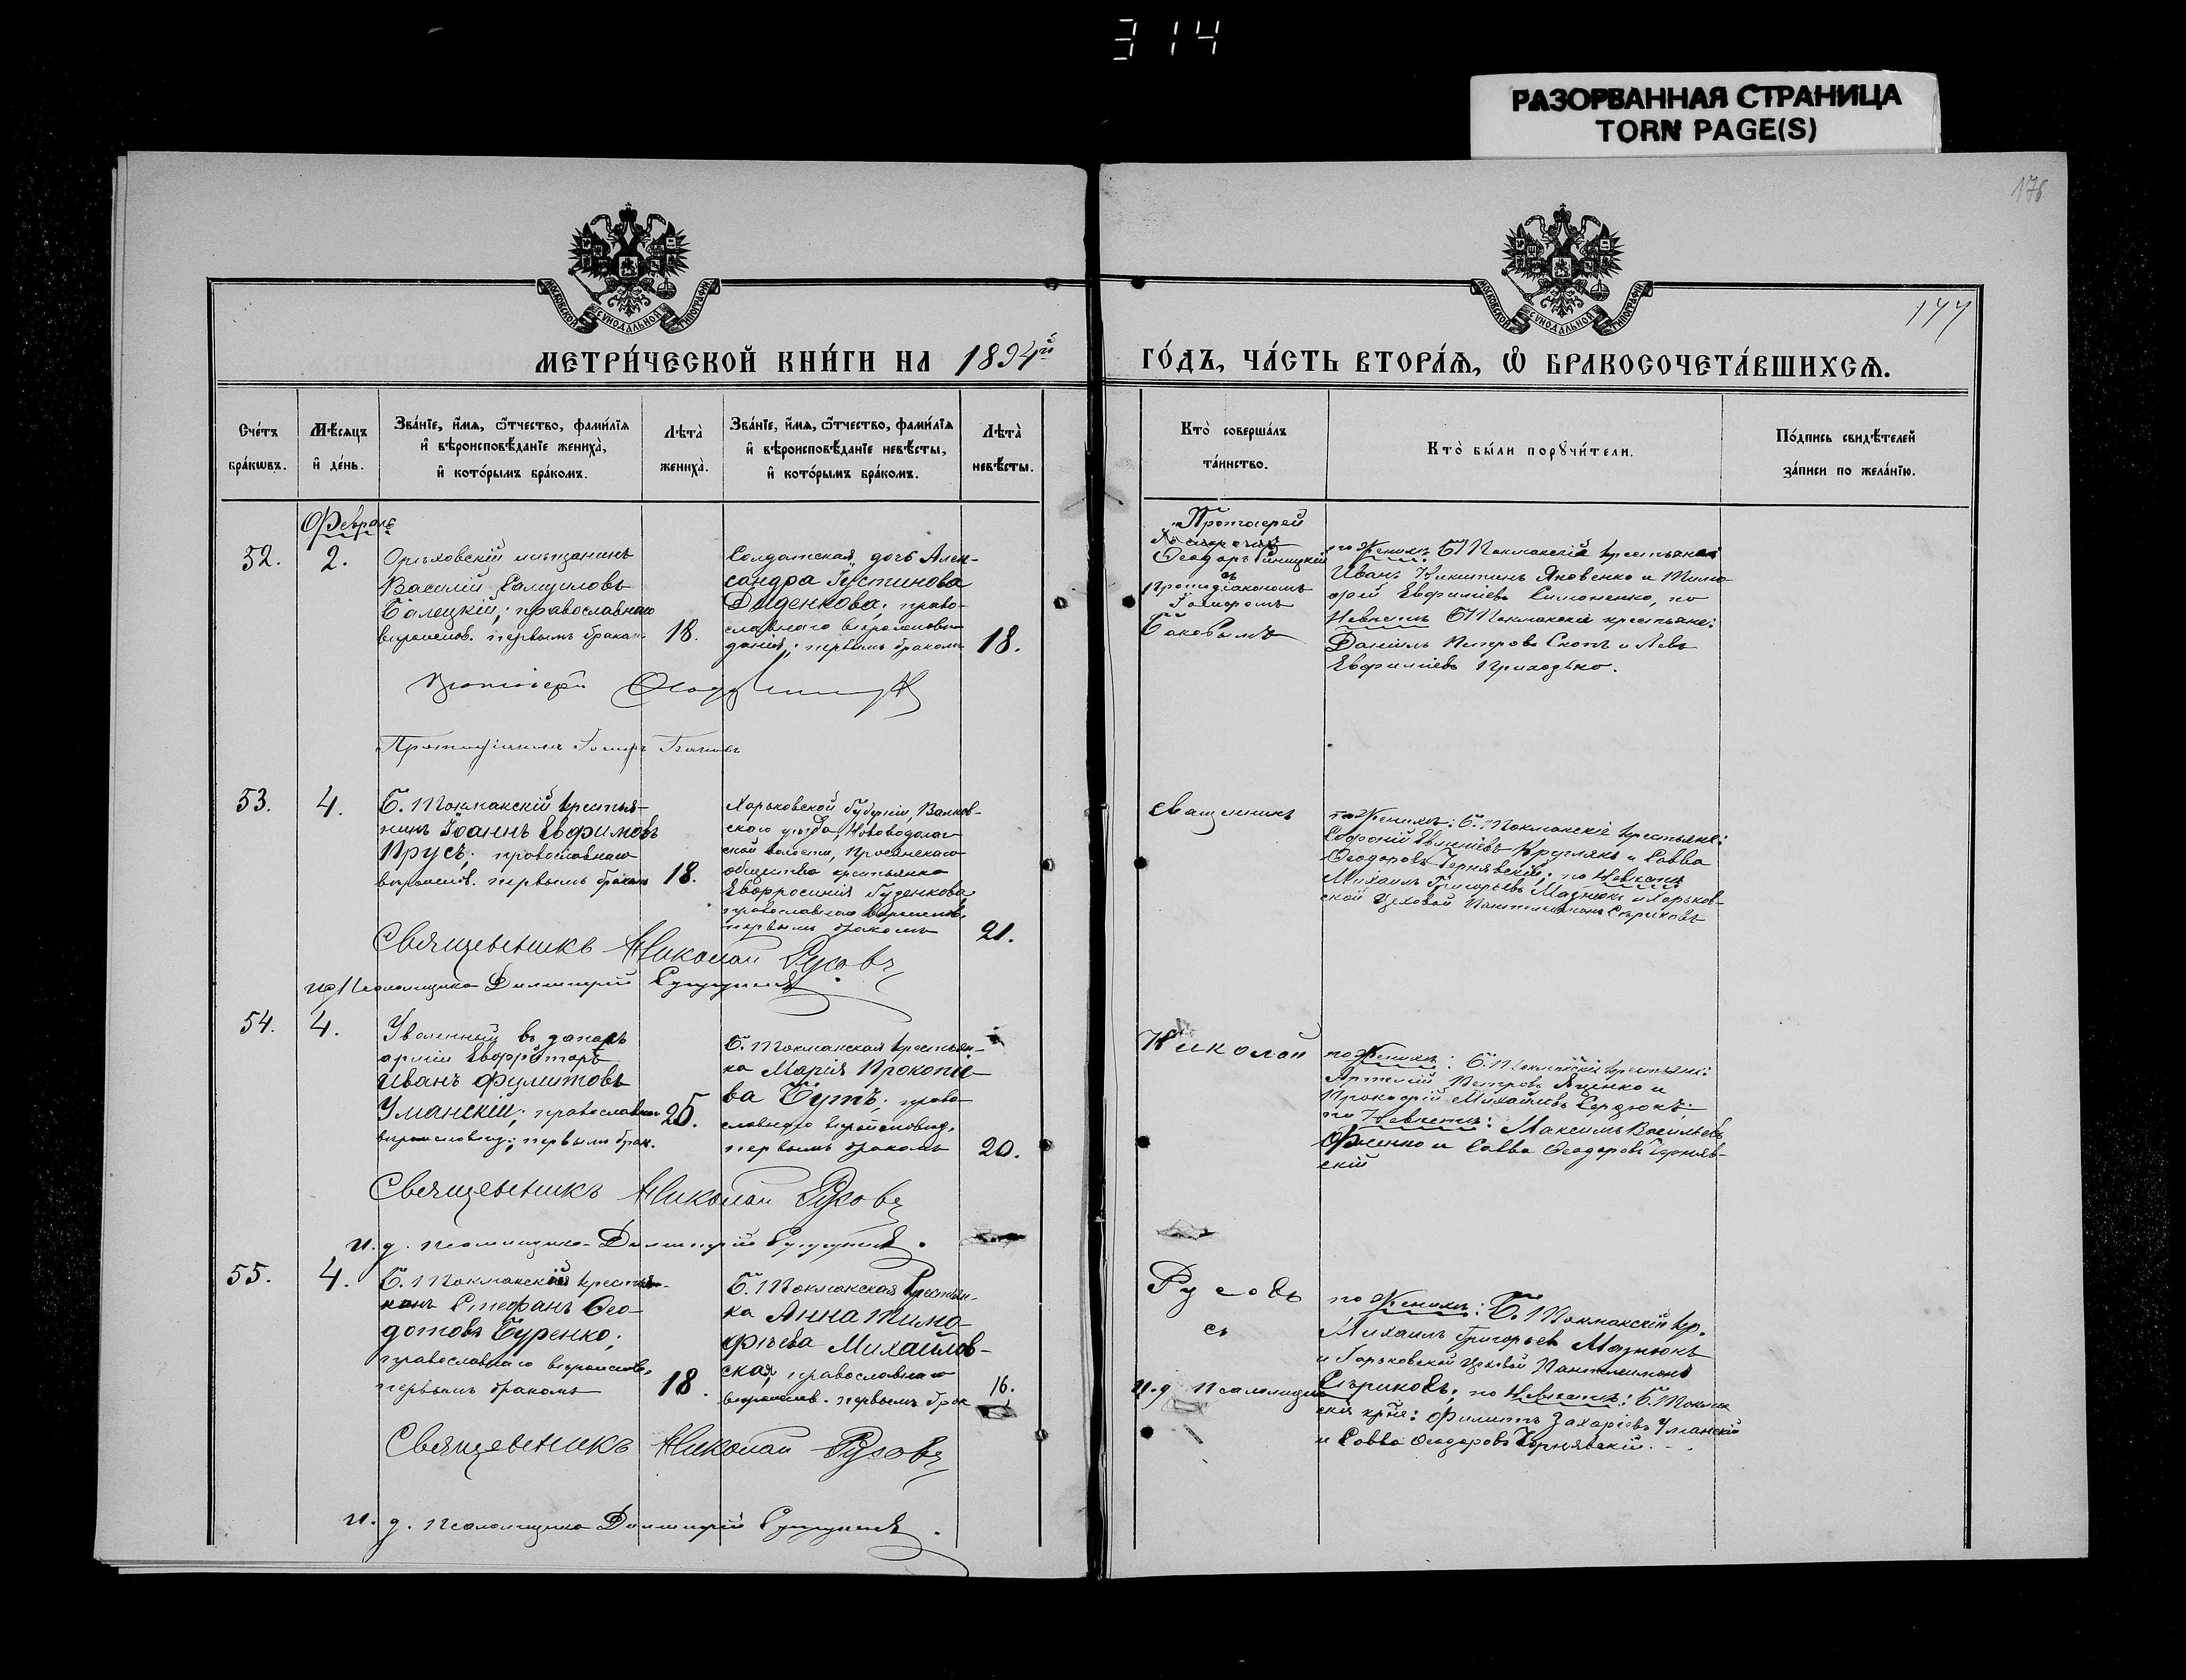 314
РАЗОРВАННАЯ СТРАНИЦА
TORN PAGE(S)
176
МОСКОВСКОЙ СУНОДАЛЬНОЙ ТИПОГРАФІИ
МОСКОВСКОЙ СУНОДАЛЬНОЙ ТИПОГРАФІИ
МЕТРИ́ЧЕСКОЙ КНИ́ГИ НА 1894й
ГО́ДЪ, ЧА́СТЬ ВТОРА́Ѧ, Ѽ БРАКОСОЧЕТА́ВШИХСѦ.
Сче́тъ бра́кѡвъ.
Мѣ́сяцъ и҆ де́нь.
Зва́нїе, и҆́мѧ, ѻ҆́тчество, фами́лїѧ
и҆ вѣроисповѣ́данїе жениха̀,
и҆ кото́рымъ бра́комъ.
Лѣта̀ жениха̀.
Зва́нїе, и҆́мѧ, ѻ҆́тчество, фами́лїѧ
и҆ вѣроисповѣ́данїе невѣ́сты,
и҆ кото́рымъ бра́комъ.
Лѣта̀ невѣ́сты.
Кто̀ соверша́лъ та́инство.
Кто̀ бы́ли порꙋчи́тели.
По́дпись свидѣ́телей
за́писи по жела́нїю.
Февраль
52.
2.
Орѣховскій мѣщанинъ
Василій Самуиловъ
Балецкій; православнаго
вѣроисп. первымъ браком.
18.
Солдатская дочь Алек-
сандра Іустинова
Диденкова; право-
славнаго вѣроиспове-
данія; первымъ бракомъ
18.
Протоіерей
Ѳеодоръ
съ
Протодіакономъ
по Женихѣ: Б Токмакскіе крестьяне
Иванъ Никитинъ Яковенко и Тимо-
фей Евфиміевъ Симоненко, по
Невѣстѣ Б Токмакскіе крестьяне:
Даніилъ Петровъ Скопъ и Левъ
Евфиміевъ Приходько.
Протоіерей
53.
4.
Б. Токмакскій крестья-
нинъ Іоаннъ Евфимовъ
Прусъ; православнаго
вѣроиспов. первымъ бракомъ
18.
Харьковской Губерніи, Валков-
скаго уѣзда, Нововодолаг-
ской волости, Просянскаго
общества крестьянка
Евфросинія Гуденкова
православнаго вѣроиспов.
первымъ бракомъ
21.
Священникъ
по Женихѣ: Б. Токмакскіе крестьяне:
Кругляк и Савва
Ѳеодоровъ Чернявскій; по Невѣстѣ
Михаилъ Григорьевъ Мазнюкъ и Харьков-
ской Цеховой Пантелеимонъ Стриковъ
Священникъ Николай Русовъ
и д Псаломщика Димитрій
54.
4.
Уволенный въ запасъ
арміи Ефрейторъ
Иванъ Филиповъ
Уманскій; православнаго
вѣроисповѣд; первымъ брак.
25.
Б. Токмакская крестьян-
ка Марія Прокопіе-
ва Бутъ; право-
славнаго вѣроисповѣд.
первымъ бракомъ
20.
Николай
по Женихѣ: Б. Токмакскіе крестьяне:
Петровъ Яценко и
Прокофій Михайловъ Сердюкъ;
по Невѣстѣ: Максимъ Васильевъ
и Савва Ѳеодоровъ Черняв-
скій
Священникъ Николай Русовъ
и. д. псаломщика Димитрій
55.
4.
Б. Токмакскій крестья-
нинъ Стефанъ Ѳео-
дотовъ Буренко;
православнаго вѣроиспов.
первымъ бракомъ
18.
Б. Токмакская крестьян-
ка Анна Тимо-
фѣева Михайлов-
ская, православнаго
вѣроиспов. первымъ брак
16.
Русовъ
съ
и.д псаломщика
по Женихѣ: Б. Токмакскіе кр.
Михаилъ Григорьев Мазнюкъ
и Харьковской Цеховой Пантелеимонъ
Стриковъ; по Невѣстѣ: Б. Токмак
скіе кр-не: Филиппъ Захаріевъ Уманскій
и Савва Ѳеодоровъ Чернявскій.
Священникъ Николай Русовъ
и. д. псаломщика Димитрій